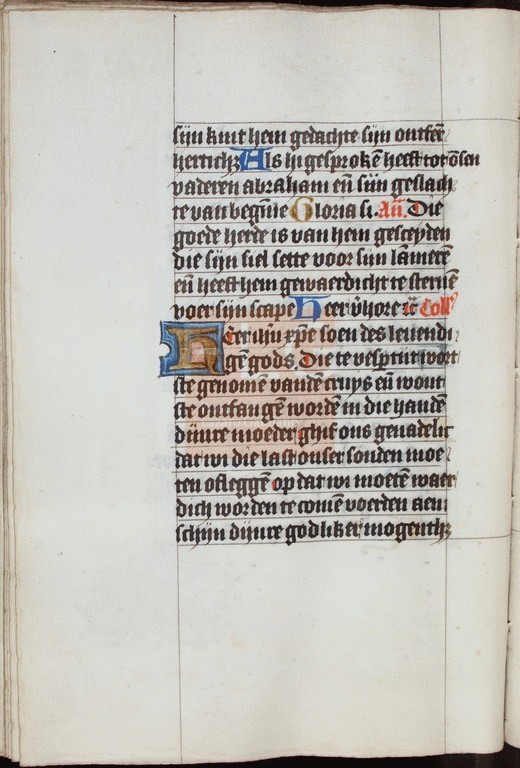 sijn kint hem gedachte sijn ontfer̄
hertichz Als hi gesprokē heeft tot ōsen
vaderen abraham eñ sijn geslach
te van begīne Gloria si. Añ. Die
goede heede is van hem gesceyden
die sijn siel sette voor sijn lāmerē
eñ heeft hem gewaerdicht te steruē
voer sijn scape Heer v̄hore Coll'
Heer ihū xp̄e soen des leuendi
gē gods. Die te vesptijt wort
ste genomē vandē cruys eñ wout
ste ontfangē wordē in die handē
dijnre moeder ghif ons genadelic
dat wi die last onser sonden moe
ten ofleggē op dat wi moetē waer
dich worden te comē voer den aen
schijn dijnre godliker mogenthz